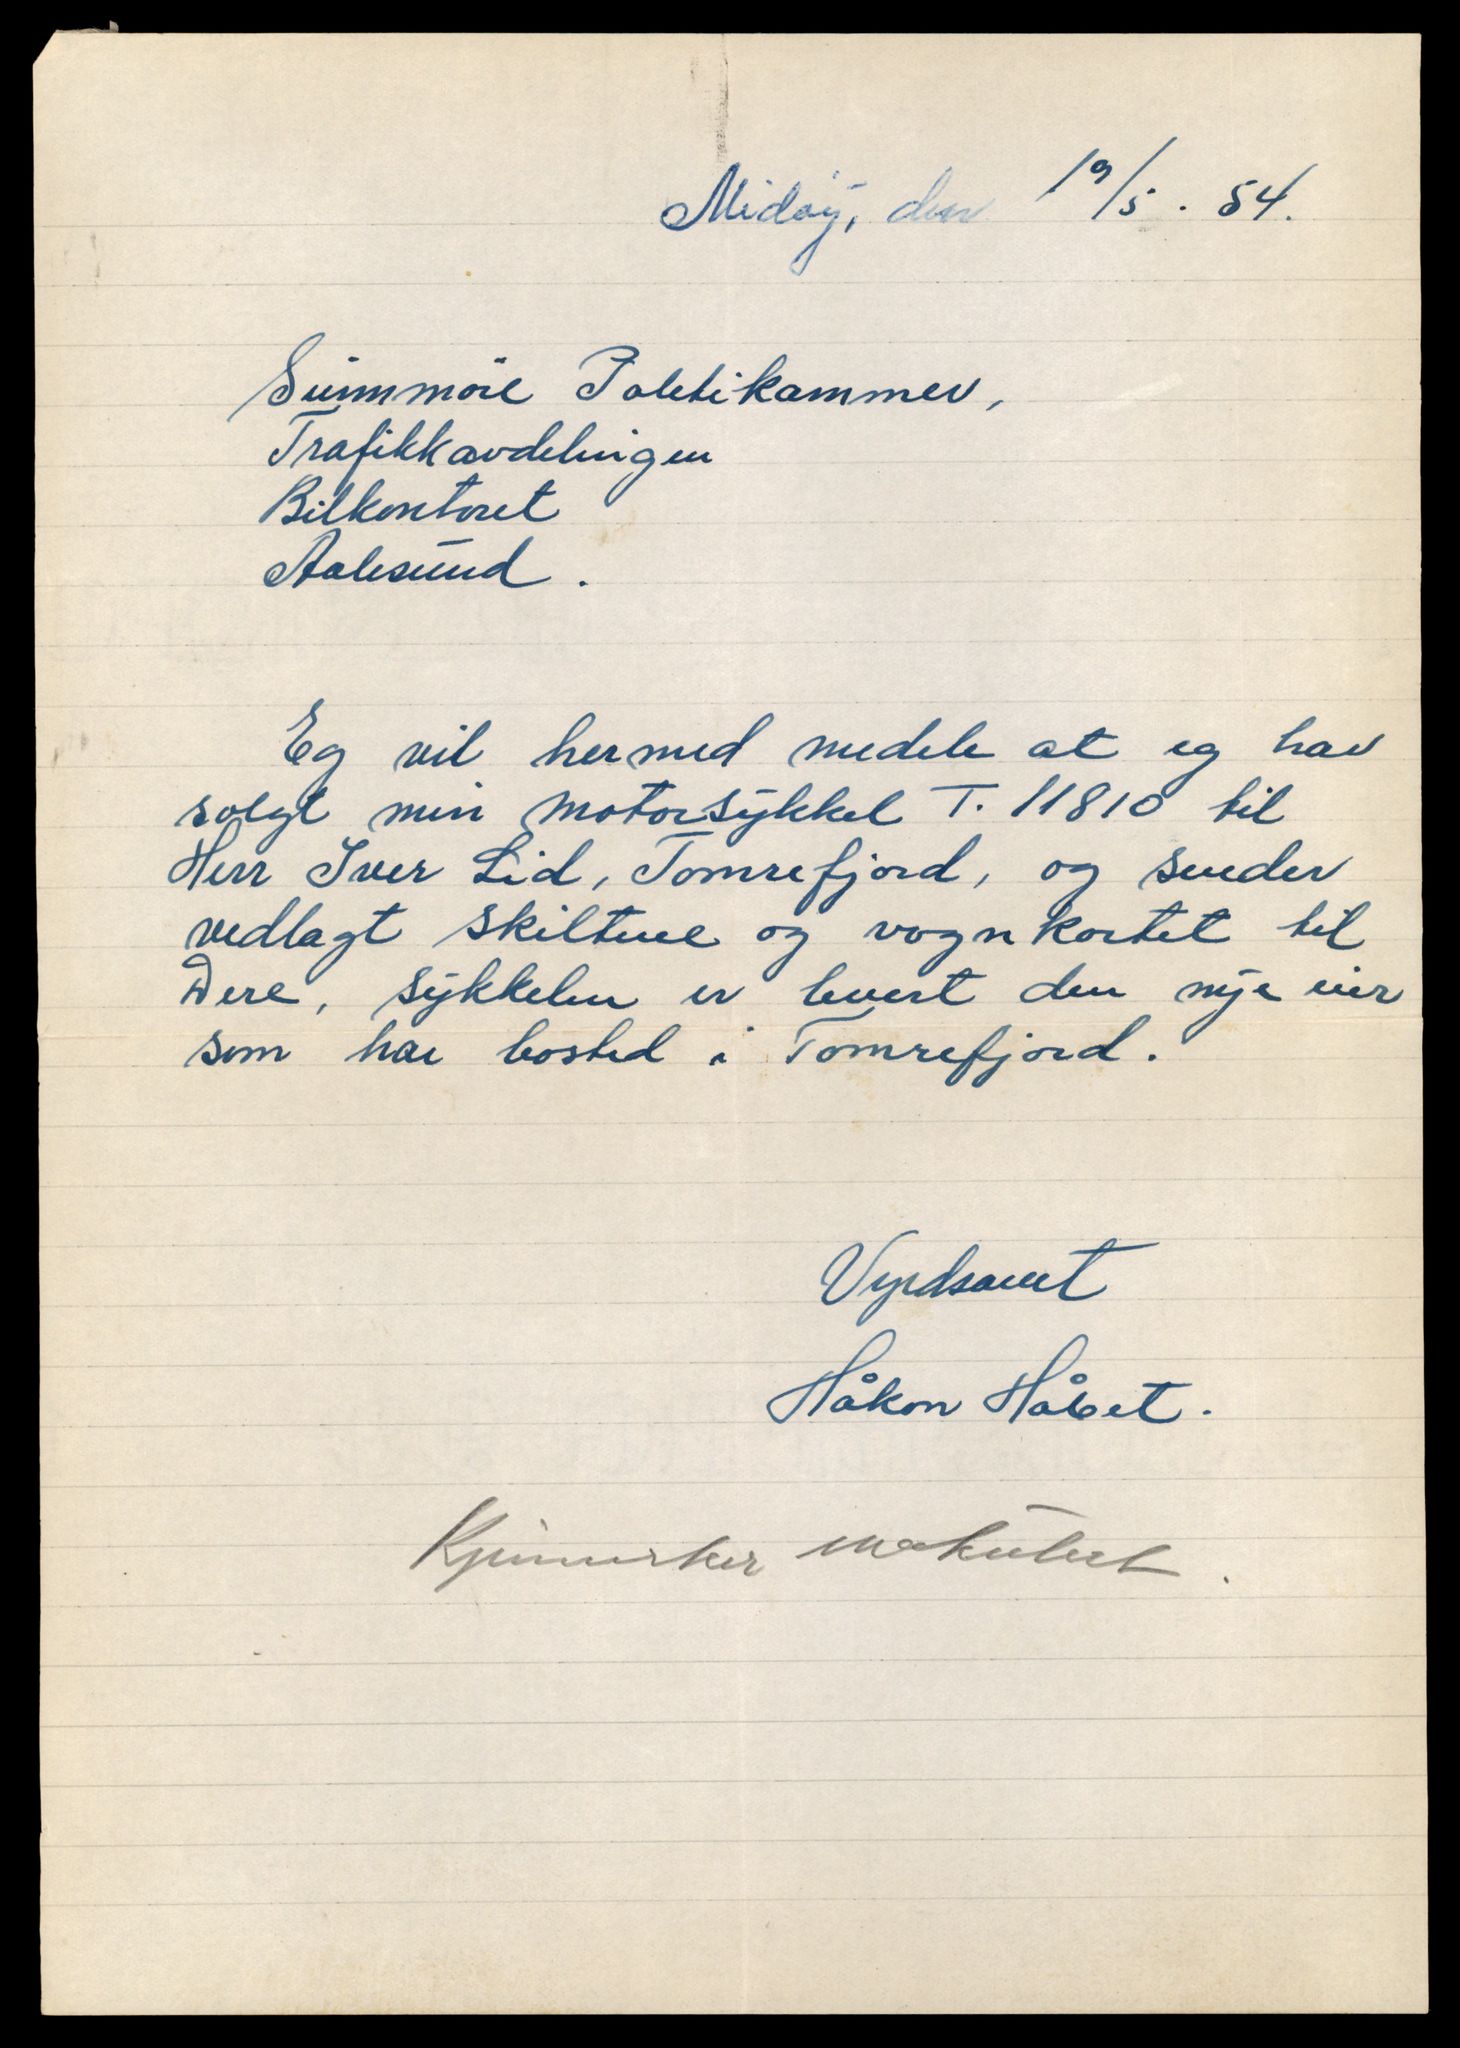 Midøy, den 19/5. 54.
Sunnmöre Politikammer,
Trafikkavdelingen
Bilkontoret
Aalesund.
Eg vil hermed medele at eg har
solgt min motorsykkel T. 11810 til
Herr Iver Lid, Tomrefjord, og sender
vedlagt skiltene og vognkortet til
Dere, sykkelen er levert den nye eier
som har bosted i Tomrefjord.
Vyrdsamt
Håkon Håbet.
Kjennerker makulert.